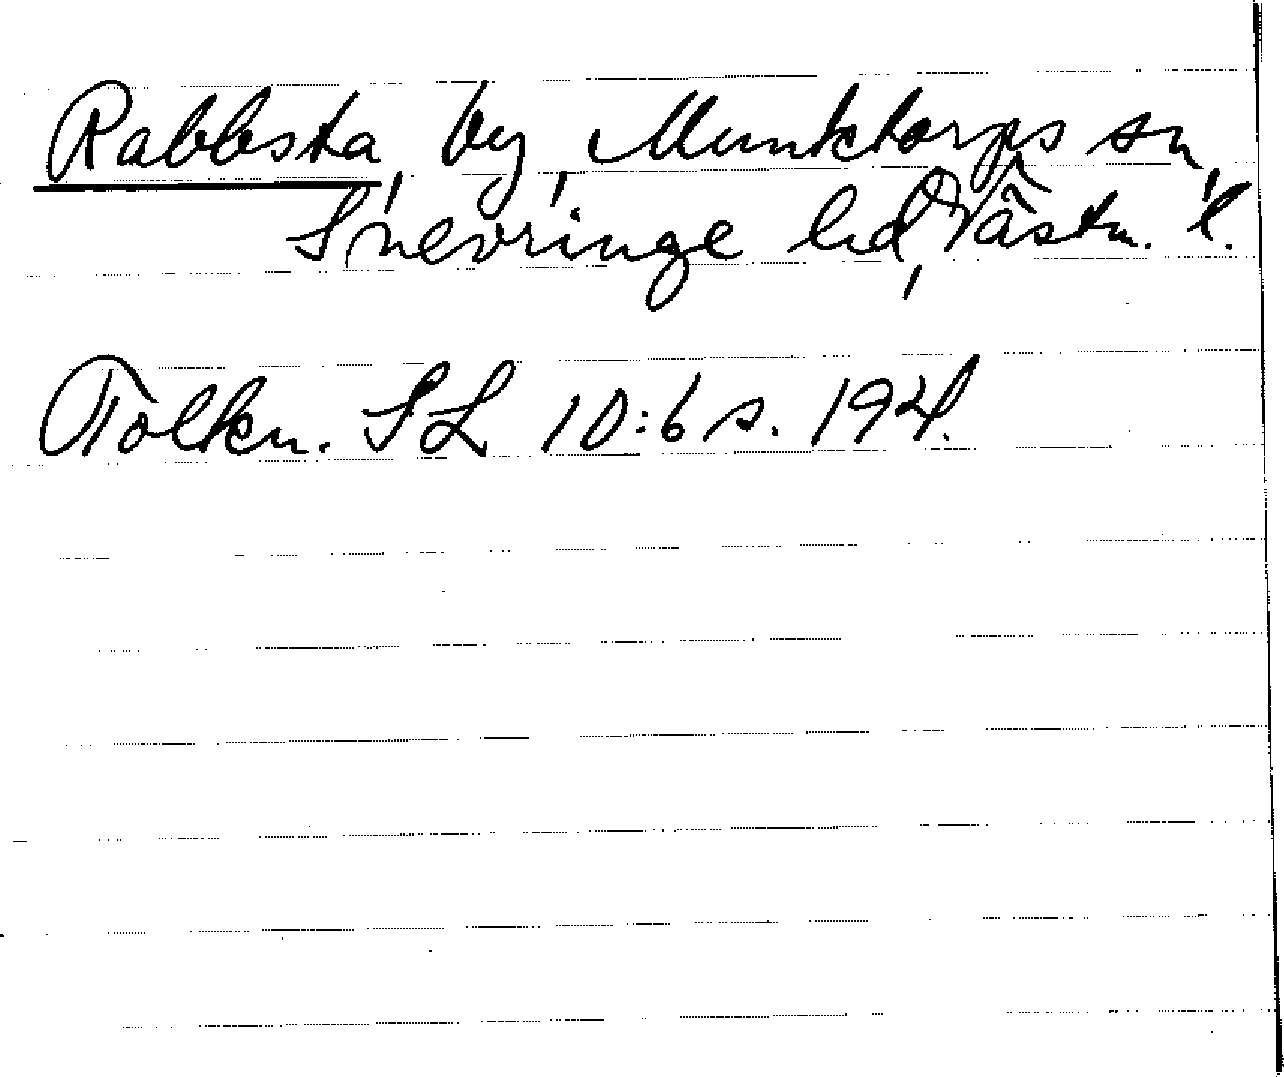 Rabbsta, by, Munktorps sn,
Snevringe hd, Västm. l.
Tolkn. SL 10:6 s. 194.